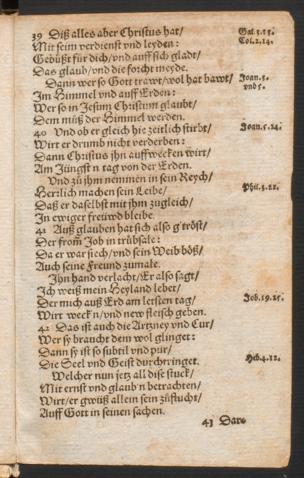 39 Diß alles aber Christus hat/ Gal. 3.13.
Mit seim verdienst vnd leyden: Col. 2.14.
Gebüßt für dich/vnd auff sich gladt/
Das glaub/vnd die forcht meyde.
Dann wer so Gott trawt/wol hat bawt/ Joan. 3.
Im Himmel vnd auff Erden: vnd 5.
Wer so in Jesum Christum glaubt/
Dem muß der Himmel werden.
40 Vnd ob er gleich hie zeitlich stirbt/ Joan. 5.24.
Wirt er drumb nicht verderben:
Dann Christus jhn auffwecken wirt/
Am Jüngsten tag von der Erden.
Vnd zů jhm nemmen in sein Reych/
Herrlich machen sein Leibe/ Phil. 3.21.
Daß er daselbst mit jhm zugleich/
In ewiger freüwd bleibe.
41 Auß glauben hat sich also g'tröst/
Der from̃ Job in trübsale:
Da er war siech/vnd sein Weib böß/
Auch seine Freund zumale.
Jhn hand verlacht/Er also sagt/
Ich weiß mein Heyland lebet/
Der mich auß Erd am letsten tag/ Job. 19.25.
Wirt weck'n/vnd new fleisch geben.
42 Das ist auch die Artzney vnd Cur/
Wer sy braucht dem wol glinget:
Dann sy ist so subtil vnd pur/
Die Seel vnd Geist durchtringet. Heb. 4.12.
Welcher nun jetz all dise stuck/
Mit ernst vnd glaub'n betrachten/
Wirt/er gwüß allein sein zůflucht/
Auff Gott in seinen sachen.
43 Dar=